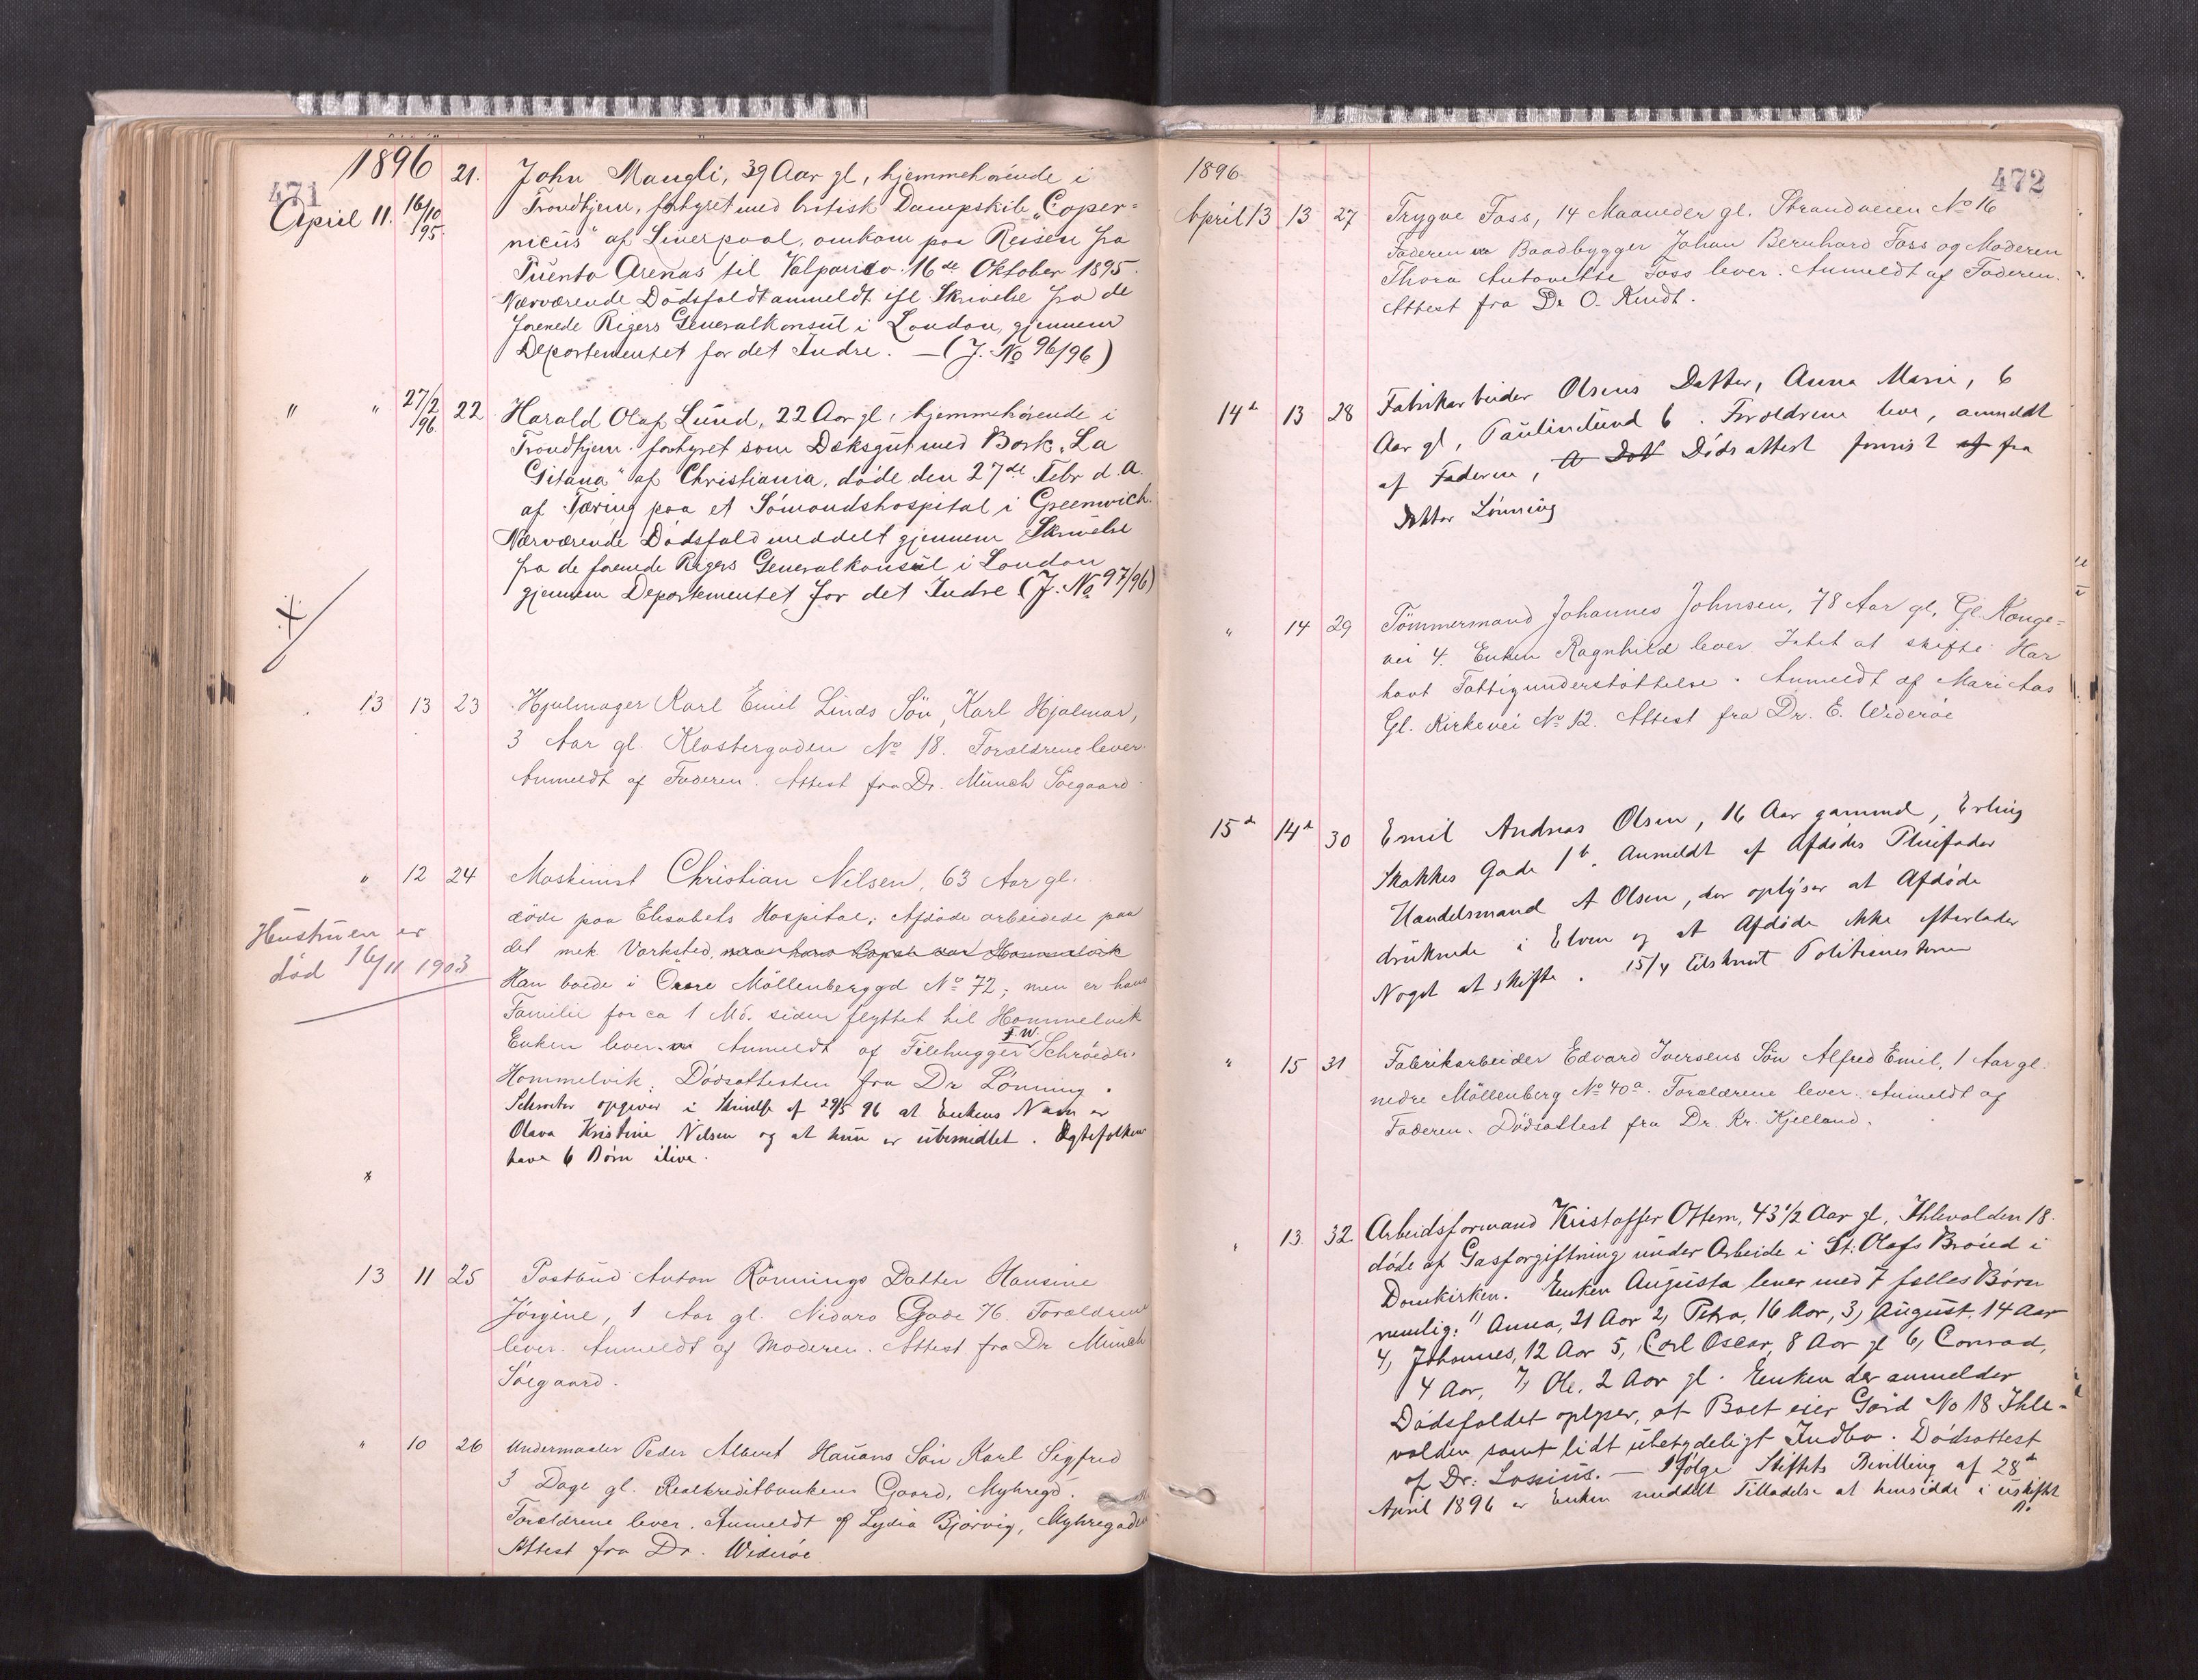 471
1896
April 11. 16/10 95. 21. John Maugli, 39 Aar gl, hjemmehørende i
Trondhjem, forhyret med britisk Dampskib „Coper=
nicus" af Liverpool, omkom paa Reisen fra
Puento Arenas til Valparaiso 16de Oktober 1895.
Nærværende Dødsfald anmeldt ifl Skrivelse fra de
forenede Rigers Generalkonsul i London, gjennem
Departementet for det Indre. — (J. No 96/96)
" " 27/2 96. 22 Harald Olaf Lund, 22 Aar gl, hjemmehørende i
Trondhjem. forhyret som Dæksgut med Bark „La
Gitana" af Christiania, døde den 27de Febr d.A.
af Tæring paa et Sømandshospital i Greenwich.
Nærværende Dødsfald meddelt gjennem Skrivelse
fra de forenede Rigers Generalkonsul i London
gjennem Departementet for det Indre (J. No 97/96)
13 13 23 Hjulmager Karl Emil Linds Søn, Karl Hjalmar,
3 Aar gl. Klostergaden No 18. Forældrene lever.
Anmeldt af Faderen. Attest fra Dr. Münch Søegaard
" 12 24 Maskinist Christian Nilsen, 63 Aar gl.
døde paa Elisabets Hospital; Afdøde arbeidede paa
det mek Værksted,
Han boede i Øvre Möllenberggd No 72; men er hans
Familie for ca 1 Md. siden flyttet til Hommelvik
Enken lever. Anmeldt af Filehugger F.W. Schrøeder.
Hommelvik. Dødsattesten fra Dr Lønning.
Schrøder opgiver i Skrivelse af 29/5 96 at Enkens Navn er
Olava Kristine Nilsen og at hun er ubemidlet. Ægtefolkene
have 6 Børn ilive.
Hustruen er
død 16/11 1903
13 11 25 Postbud Anton Rønnings Datter Hansine
Jørgine, 1 Aar gl. Nidaros Gade 76. Forældrene
lever. Anmeldt af Moderen. Attest fra Dr Münch
Søegaard.
" 10 26 Undermaaler Peder Albert Hauans Søn Karl Sigfred
3 Dage gl. Realkreditbankens Gaard, Myhregd.
Forældrene lever. Anmeldt af Lydia Bjørvig, Myhregaden
Attest fra Dr. Widerøe
472
1896
April 13 13 27 Trygve Foss, 14 Maaneder gl. Strandveien No 16
Faderen Baadbygger Johan Bernhard Foss og Moderen
Thora Antonette Foss lever. Anmeldt af Faderen.
Attest fra Dr O. Kindt.
14d 13 28 Fabrikarbeider Olsens Datter, Anna Marie, 6
Aar gl, Paulinelund 6. Forældrene leve, anmeldt
af Faderen, Dødsattest forevist af fra
Doktor Lønning
" 14 29 Tömmermand Johannes Johnsen, 78 Aar gl, Gl. Konge=
vei 4. Enken Ragnhild lever. Intet at skifte. Har
havt Fattigunderstøttelse. Anmeldt af Mari Aas
Gl. Kirkevei No 12. Attest fra Dr. E. Widerøe
15d 14d 30 Emil Andreas Olsen, 16 Aar gammel, Erling
Skakkes Gade 1b. Anmeldt af Afdødes Pleiefader
Handelsmand A Olsen, der oplyser at Afdøde
druknede i Elven og at Afdøde ikke efterlader
Noget at skifte. 15/4 tilskrevet Politimesteren
" 15 31 Fabrikarbeider Edvard Iversens Søn Alfred Emil, 1 Aar gl.
nedre Möllenberg No 40a. Forældrene lever. Anmeldt af
Faderen. Dödsattest fra Dr. Kr. Kjelland.
" 13 32 Arbeidsformand Kristoffer Ottem, 43 1/2 Aar gl, Ihlevolden 18.
døde af Gasforgiftning under Arbeide i St: Olafs Brønd i
Domkirken. Enken Augusta lever med 7 fælles Børn
nemlig: 1) Anna, 21 Aar 2, Petra, 16 Aar, 3, August, 14 Aar
4, Johannes, 12 Aar 5, Carl Oscar, 8 Aar gl 6, Conrad,
4 Aar, 7, Ole, 2 Aar gl. Enken der anmelder
Dødsfaldet oplyser, at Boet eier Gård No 18 Ihle-
volden samt lidt ubetydeligt Indbo. Dödsattest
af Dr: Lossius. — Ifølge Skiftets Bevilling af 28d
April 1896 er Enken meddelt Tilladelse at hensidde i uskiftet
Bo